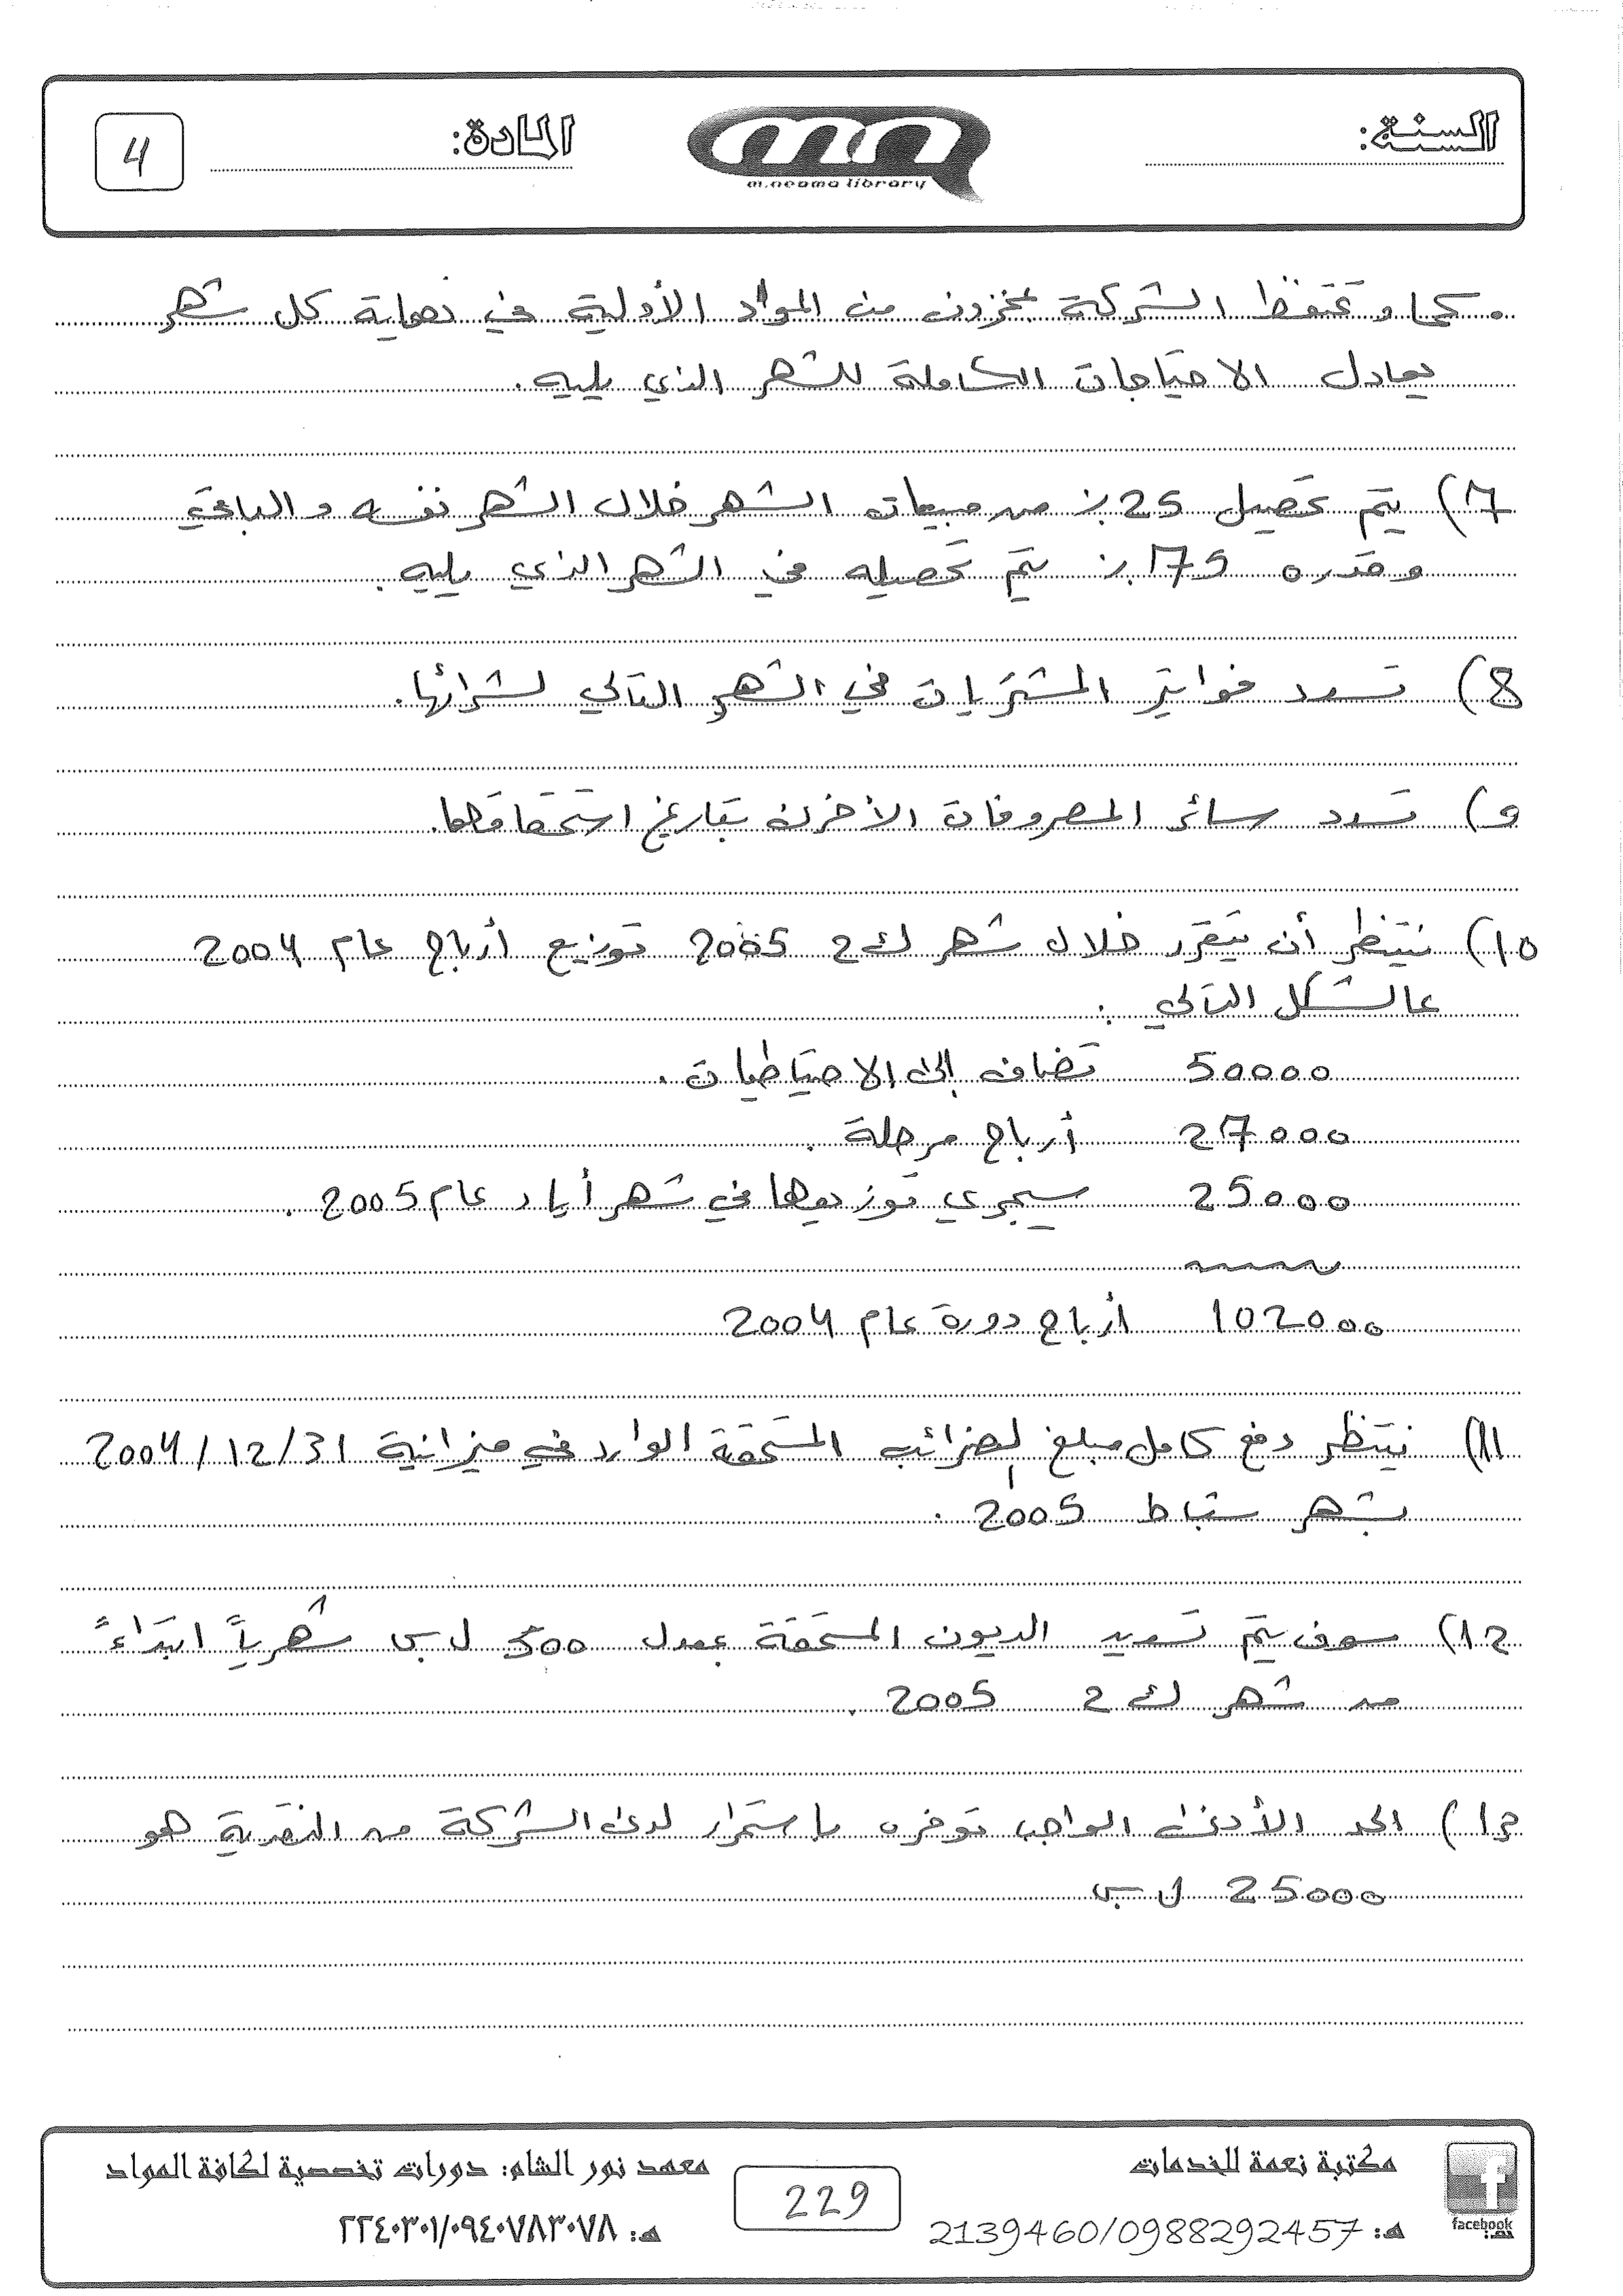 السنة:
m.neama library
المادة:
4
• كما وتحتفظ الشركة بمخزون من المواد الأولية في نهاية كل شهر
يعادل الاحتياجات الكاملة للشهر الذي يليه.
7) يتم تحصيل 25٪ من مبيعات الشهر خلال الشهر نفسه والباقي
وقدره 75٪ يتم تحصيله في الشهر الذي يليه.
8) تسدد فواتير المشتريات في الشهر التالي لشرائها.
9) تسدد سائر المصروفات الأخرى بتاريخ استحقاقها.
10) ننتظر أن يتقرر خلال شهر ك2 2005 توزيع أرباح عام 2004
عالشكل التالي:
50000 تضاف إلى الاحتياطيات.
27000 أرباح مرحلة.
25000 سيجري توزيعها في شهر أيار عام 2005.
102000 أرباح دورة عام 2004
11) ننتظر دفع كامل مبلغ الضرائب المستحقة الوارد في ميزانية 31/12/2004
بشهر شباط 2005.
12) سوف يتم تسديد الديون المستحقة بمعدل 500 ل.س شهرياً ابتداءً
من شهر ك2 2005.
13) الحد الأدنى الواجب توفره باستمرار لدى الشركة من النقدية هو
25000 ل.س
facebook
مكتبة نعمة للخدمات
هـ: 2139460/0988292457
229
معهد نور الشام: دورات تخصصية لكافة المواد
هـ: ٢٢٤٠٣٠١/٠٩٤٠٧٨٣٠٧٨